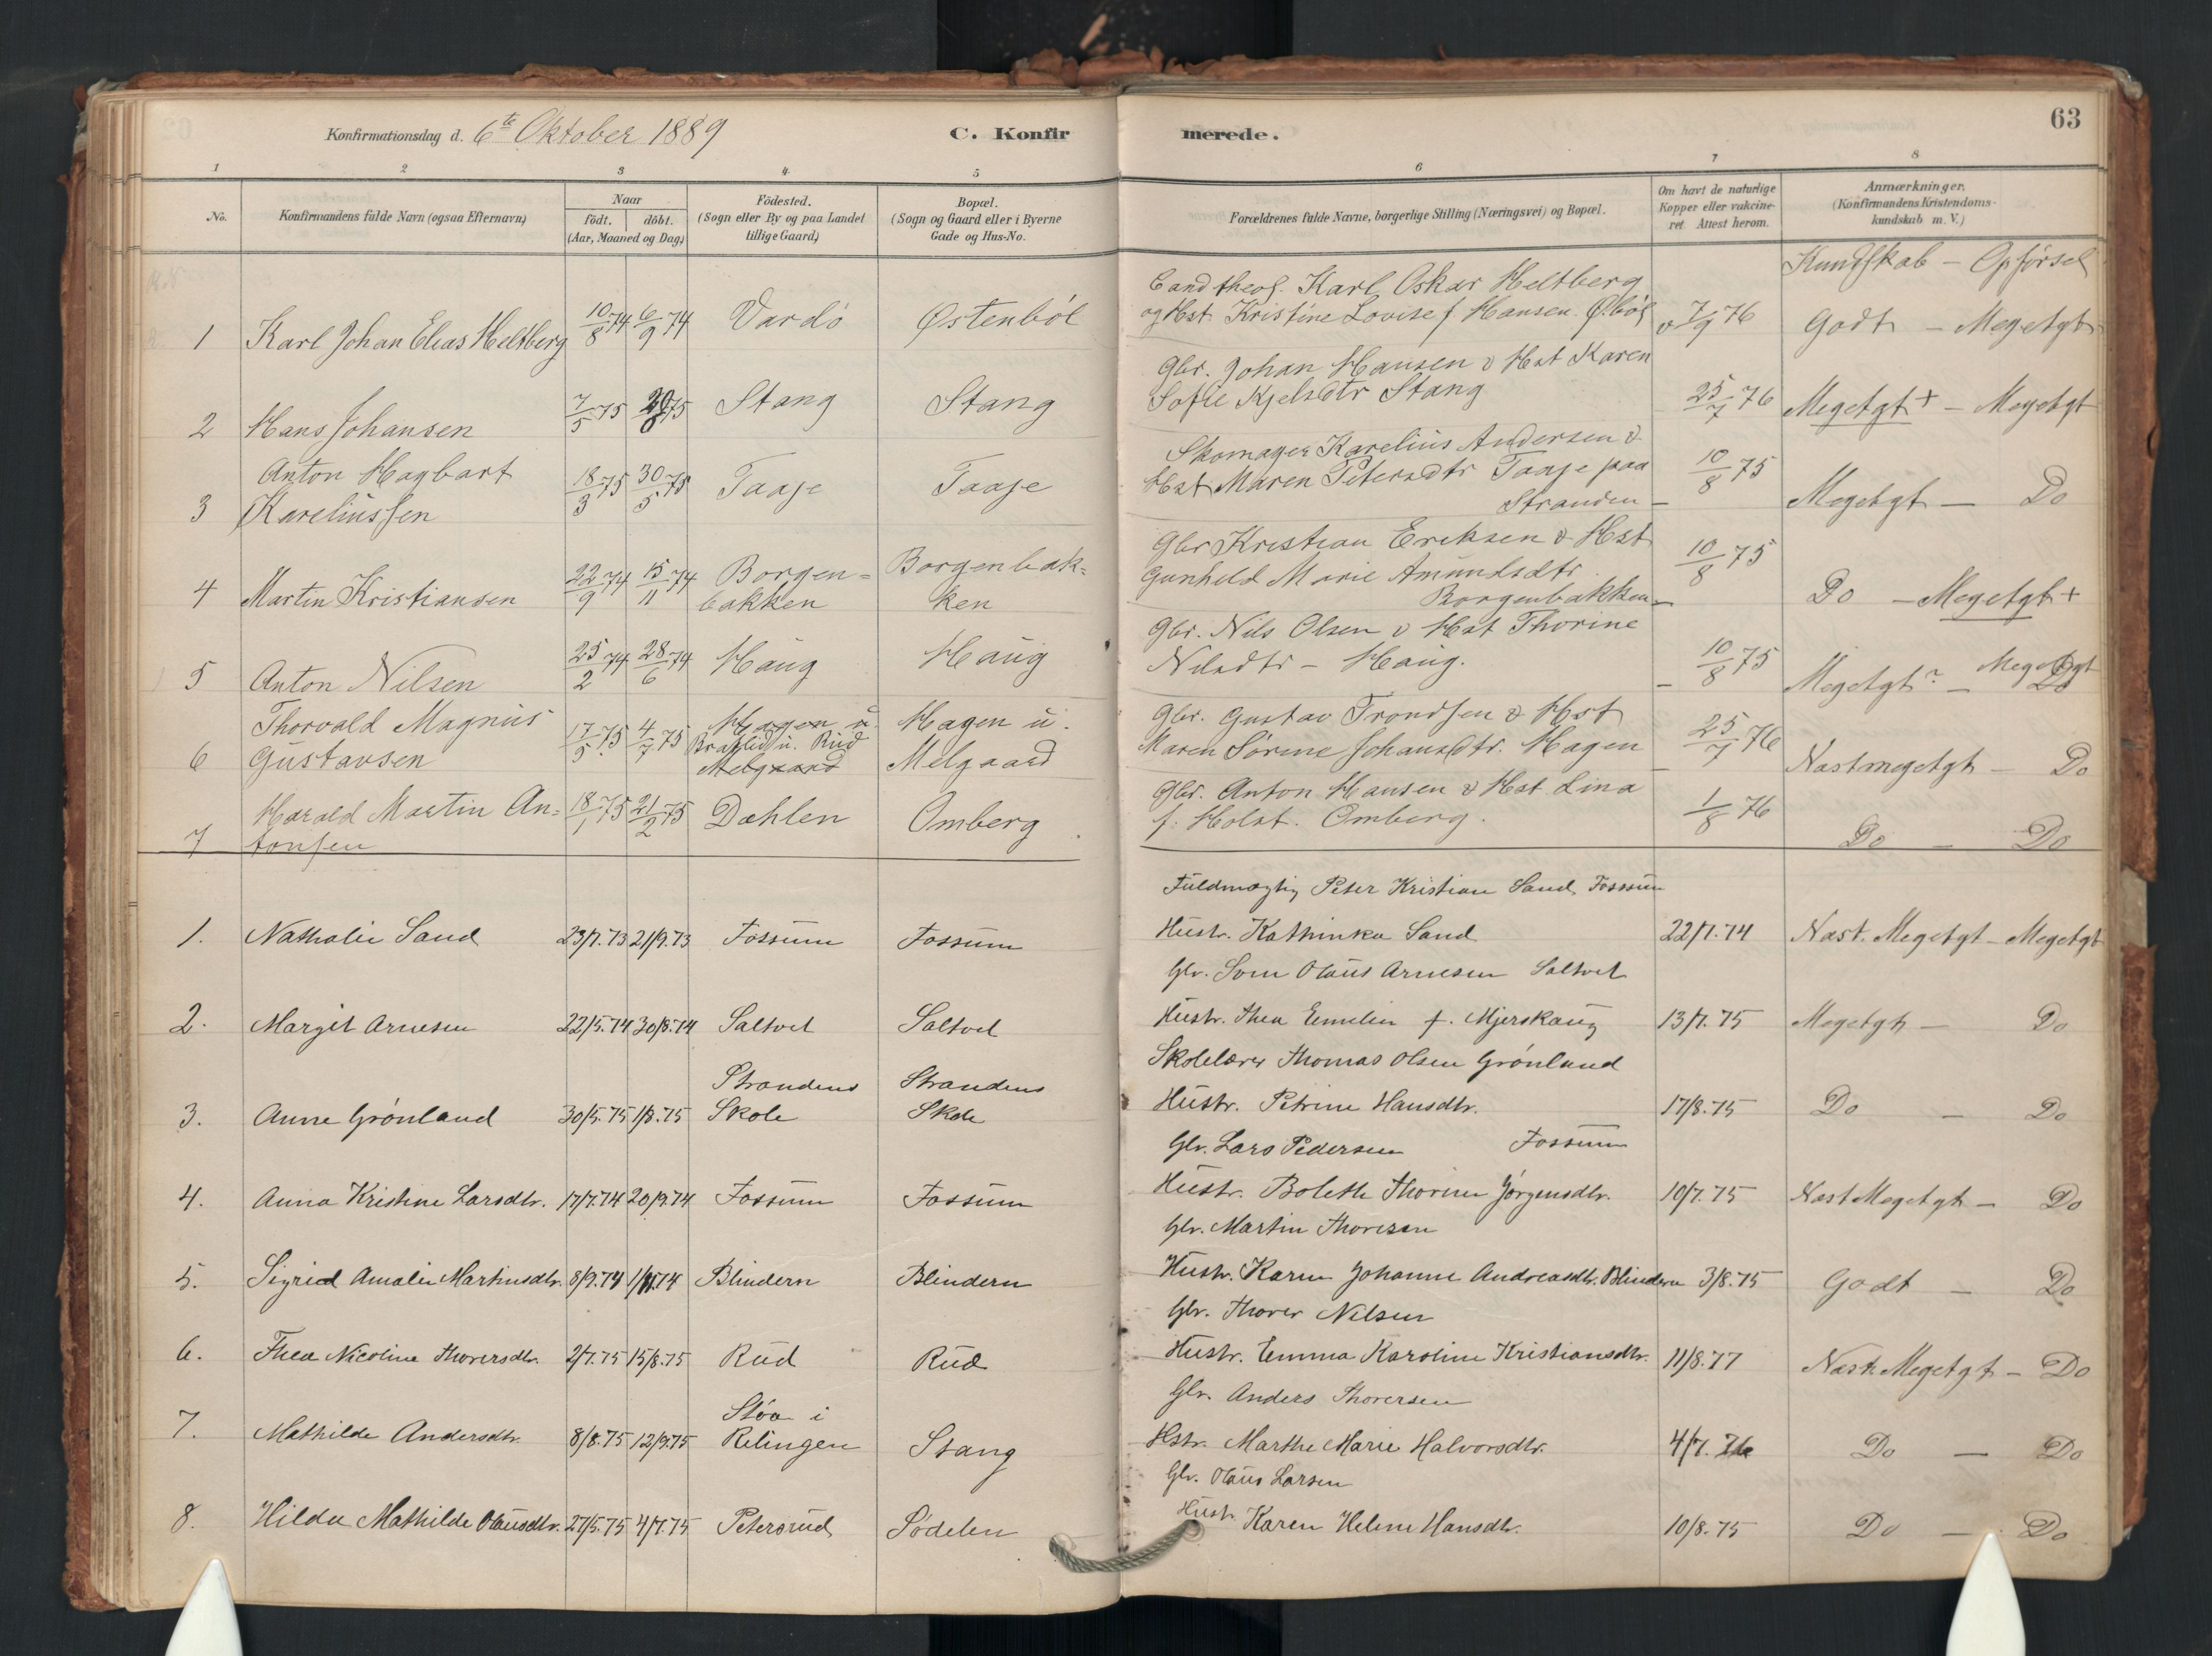 63
Konfirmationsdag d. 6te Oktober 1889 C. Konfirmerede.
1 2 3 4 5 6 7 8
No. Konfirmandens fulde Navn (ogsaa Efternavn)
Naar födt. döbt. (Aar, Maaned og Dag)
Födested. (Sogn eller By og paa Landet tillige Gaard)
Bopæl. (Sogn og Gaard eller i Byerne Gade og Hus-No.
Forældrenes fulde Navne, borgerlige Stilling (Næringsvei) og Bopæl.
Om havt de naturlige Kopper eller vakcineret Attest herom.
Anmærkninger. (Konfirmandens Kristendomskundskab m. V.)
Kundskab - Opførsel
Cand theol. Karl Oskar Heltberg
1 Karl Johan Elias Heltberg 10/8 74 6/9 74 Vardö Østenböl og Hst. Kristine Lovise f Hansen. Ø.böl v 7/9 76 Godt - Megetgt
Gbr. Johan Hansen & Hst Karen
2 Hans Johansen 7/5 75 20/8 75 Stang Stang Sofie Kjelsdtr Stang 25/7 76 Megetgt+ - Megetgt
Anton Hagbart Skomager Karelius Andersen &
3 Kareliussen 18/3 75 30/5 75 Taaje Taaje Hst. Maren Petersdtr Taaje paa Stranden - 10/8 75 Megetgt - Do
Gbr Kristian Eriksen & Hst
4 Martin Kristiansen 22/9 74 15/11 74 Borgen=bakken Borgenbak=ken Gunhild Marie Amundsdtr Borgenbakken - 10/8 75 Do - Megetgt+
Gbr. Nils Olsen & Hst Thorine
5 Anton Nilsen 25/2 74 28/6 74 Haug Haug Nilsdtr - Haug. 10/8 75 Megetgt? - Megetgt Do
Thorvald Magnus Hagen u. Hagen u. Gbr. Gustav Trondsen & Hst
6 Gustavsen 17/5 75 4/7 75 Bratlid u. Rud Melgaard Melgaard Maren Sørine Johansdtr. Hagen 25/7 76 Næstmegetgt - Do
Harald Martin An= Gbr. Anton Hansen & Hst. Lina
7 tonsen 18/1 75 21/2 75 Dæhlen Omberg f. Holst. Omberg. 1/8 76 Do - Do
Fuldmægtig Peter Kristian Sand, Fossum
1. Nathalie Sand 23/7.73 21/9.73 Fossum Fossum Hustr. Kathinka Sand 22/7.74 Næst. Megetgt - Megetgt
Gbr. Sven Olaus Arnesen Saltvet
2. Margit Arnesen 22/5.74 30/8.74 Saltvet Saltvet Hustr. Thea Emilie f. Mjerskaug 13/7.75 Megetgt - Do
Skolelærer Thomas Olsen Grönland
3. Anne Grönland 30/5.75 1/8.75 Strandens Skole Strandens Skole Hustr. Petrine Hansdtr. 17/8.75 Do - Do
Gbr. Lars Pedersen Fossum
4. Anna Kristine Larsdtr. 17/7.74 20/9.74 Fossum Fossum Hustr. Bolette Thorine Jörgensdtr. 10/7.75 Næst Megetgt - Do
Gbr. Martin Thoresen
5. Sigrid Amalie Martinsdtr. 8/9.74 1/11.74 Blindern Blindern Hustr. Karen Johanne Andreasdtr. Blindern 3/8.75 Godt - Do
Gbr. Thorer Nilsen
6. Thea Nicoline Thorersdtr. 2/7.75 15/8.75 Rud Rud Hustr. Emma Karoline Kristiansdtr. 11/8.77 Næst. Megetgt - Do
Gbr. Anders Thorersen
7. Mathilde Andersdtr. 8/8.75 12/9.75 Støa i Relingen Stang Hstr. Marthe Marie Halvorsdtr. 4/7.76 Do - Do
Gbr. Olaus Larsen
8. Hilda Mathilde Olausdtr. 27/5.75 4/7.75 Petersrud Södelen Hustr Karen Helene Hansdtr. 10/8.75 Do - Do